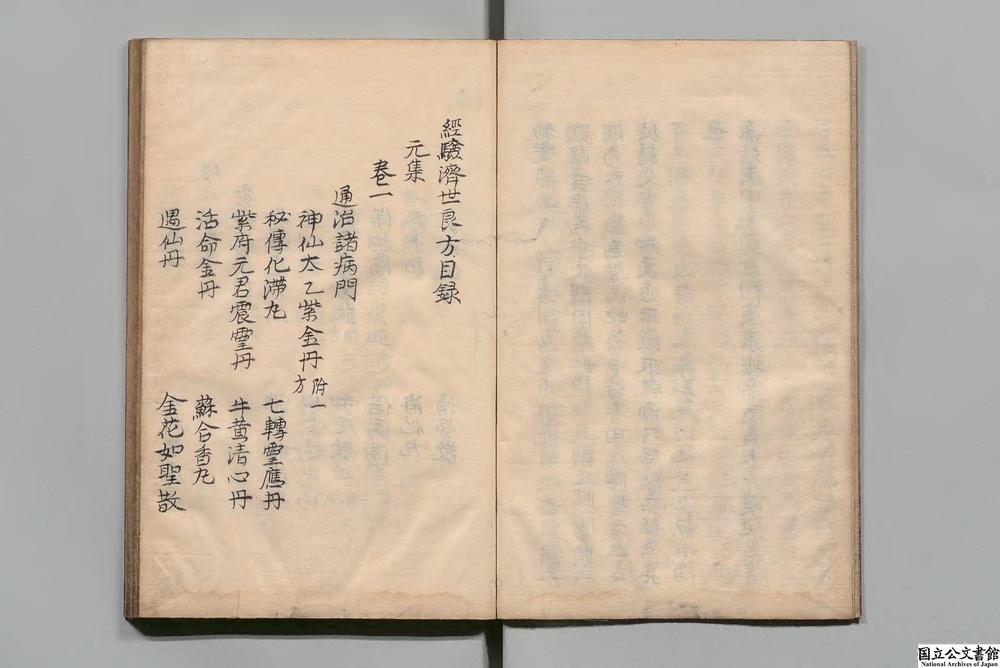 經驗濟世良方目録
元集
卷一
通治諸病門
神仙太乙紫金丹 附一方
秘傳化滞丸 七轉靈應丹
紫府元君震靈丹 牛黄清心丹
活命金丹 蘇合香丸
遇仙丹 金花如聖散
国立公文書館
National Archives of Japan